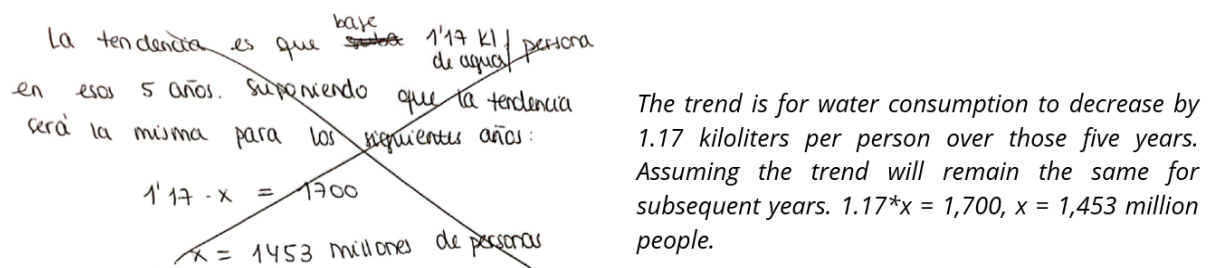 La tendencia es que base 1'17 Kl / persona
de agua
en esos 5 años. Suponiendo que la tendencia
será la misma para los siguientes años:
1'17 · x = 1700
x = 1453 millones de personas
The trend is for water consumption to decrease by
1.17 kiloliters per person over those five years.
Assuming the trend will remain the same for
subsequent years. 1.17*x = 1,700, x = 1,453 million
people.